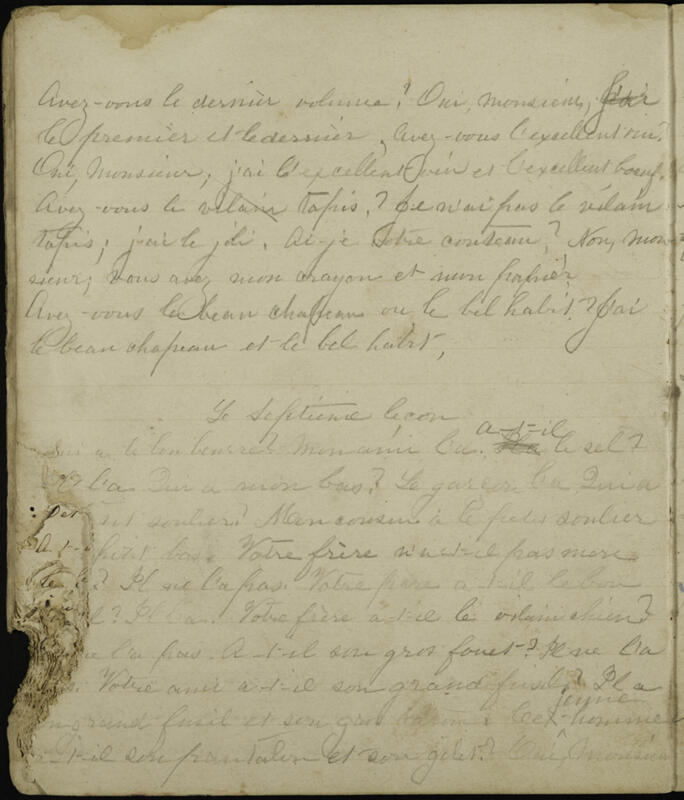 Avez-vous le dernier volume? Oui, monsieur, j'ai
le premier et le dernier, Avez-vous l'excellent vin?
Oui, Monsieur, j'ai l'excellent vin et l'excellent boeuf.
Avez-vous le vilain tapis,? Je n'ai pas le vilain
tapis; j'ai le joli. Ai-je votre couteau? Non, mon-
sieur; vous avez mon crayon et mon papier
Avez-vous le beau chapeau ou le bel habit? J'ai
le beau chapeau et le bel habit,
Le septième leçon
Qui a le bon beurre? Mon ami l'a. a-t-il le sel?
Il l'a Qui a mon bas? Le garçon l'a Qui a
soulier? Mon cousin a le petit soulier
A t- petit bas. Votre frère n'a-t-il pas mon
? Il ne l'a pas. Votre père a-t-il le bon
? Il l'a. Votre frère a-t-il le vilain chien?
ne l'a pas. A-t-il son gros fouet? Il ne l'a
Votre ami a-t-il son grand fusil? Il a
grand fusil et son gros bâton. Ce jeune homme
a-t-il son pantalon et son gilet? Oui, Monsieur